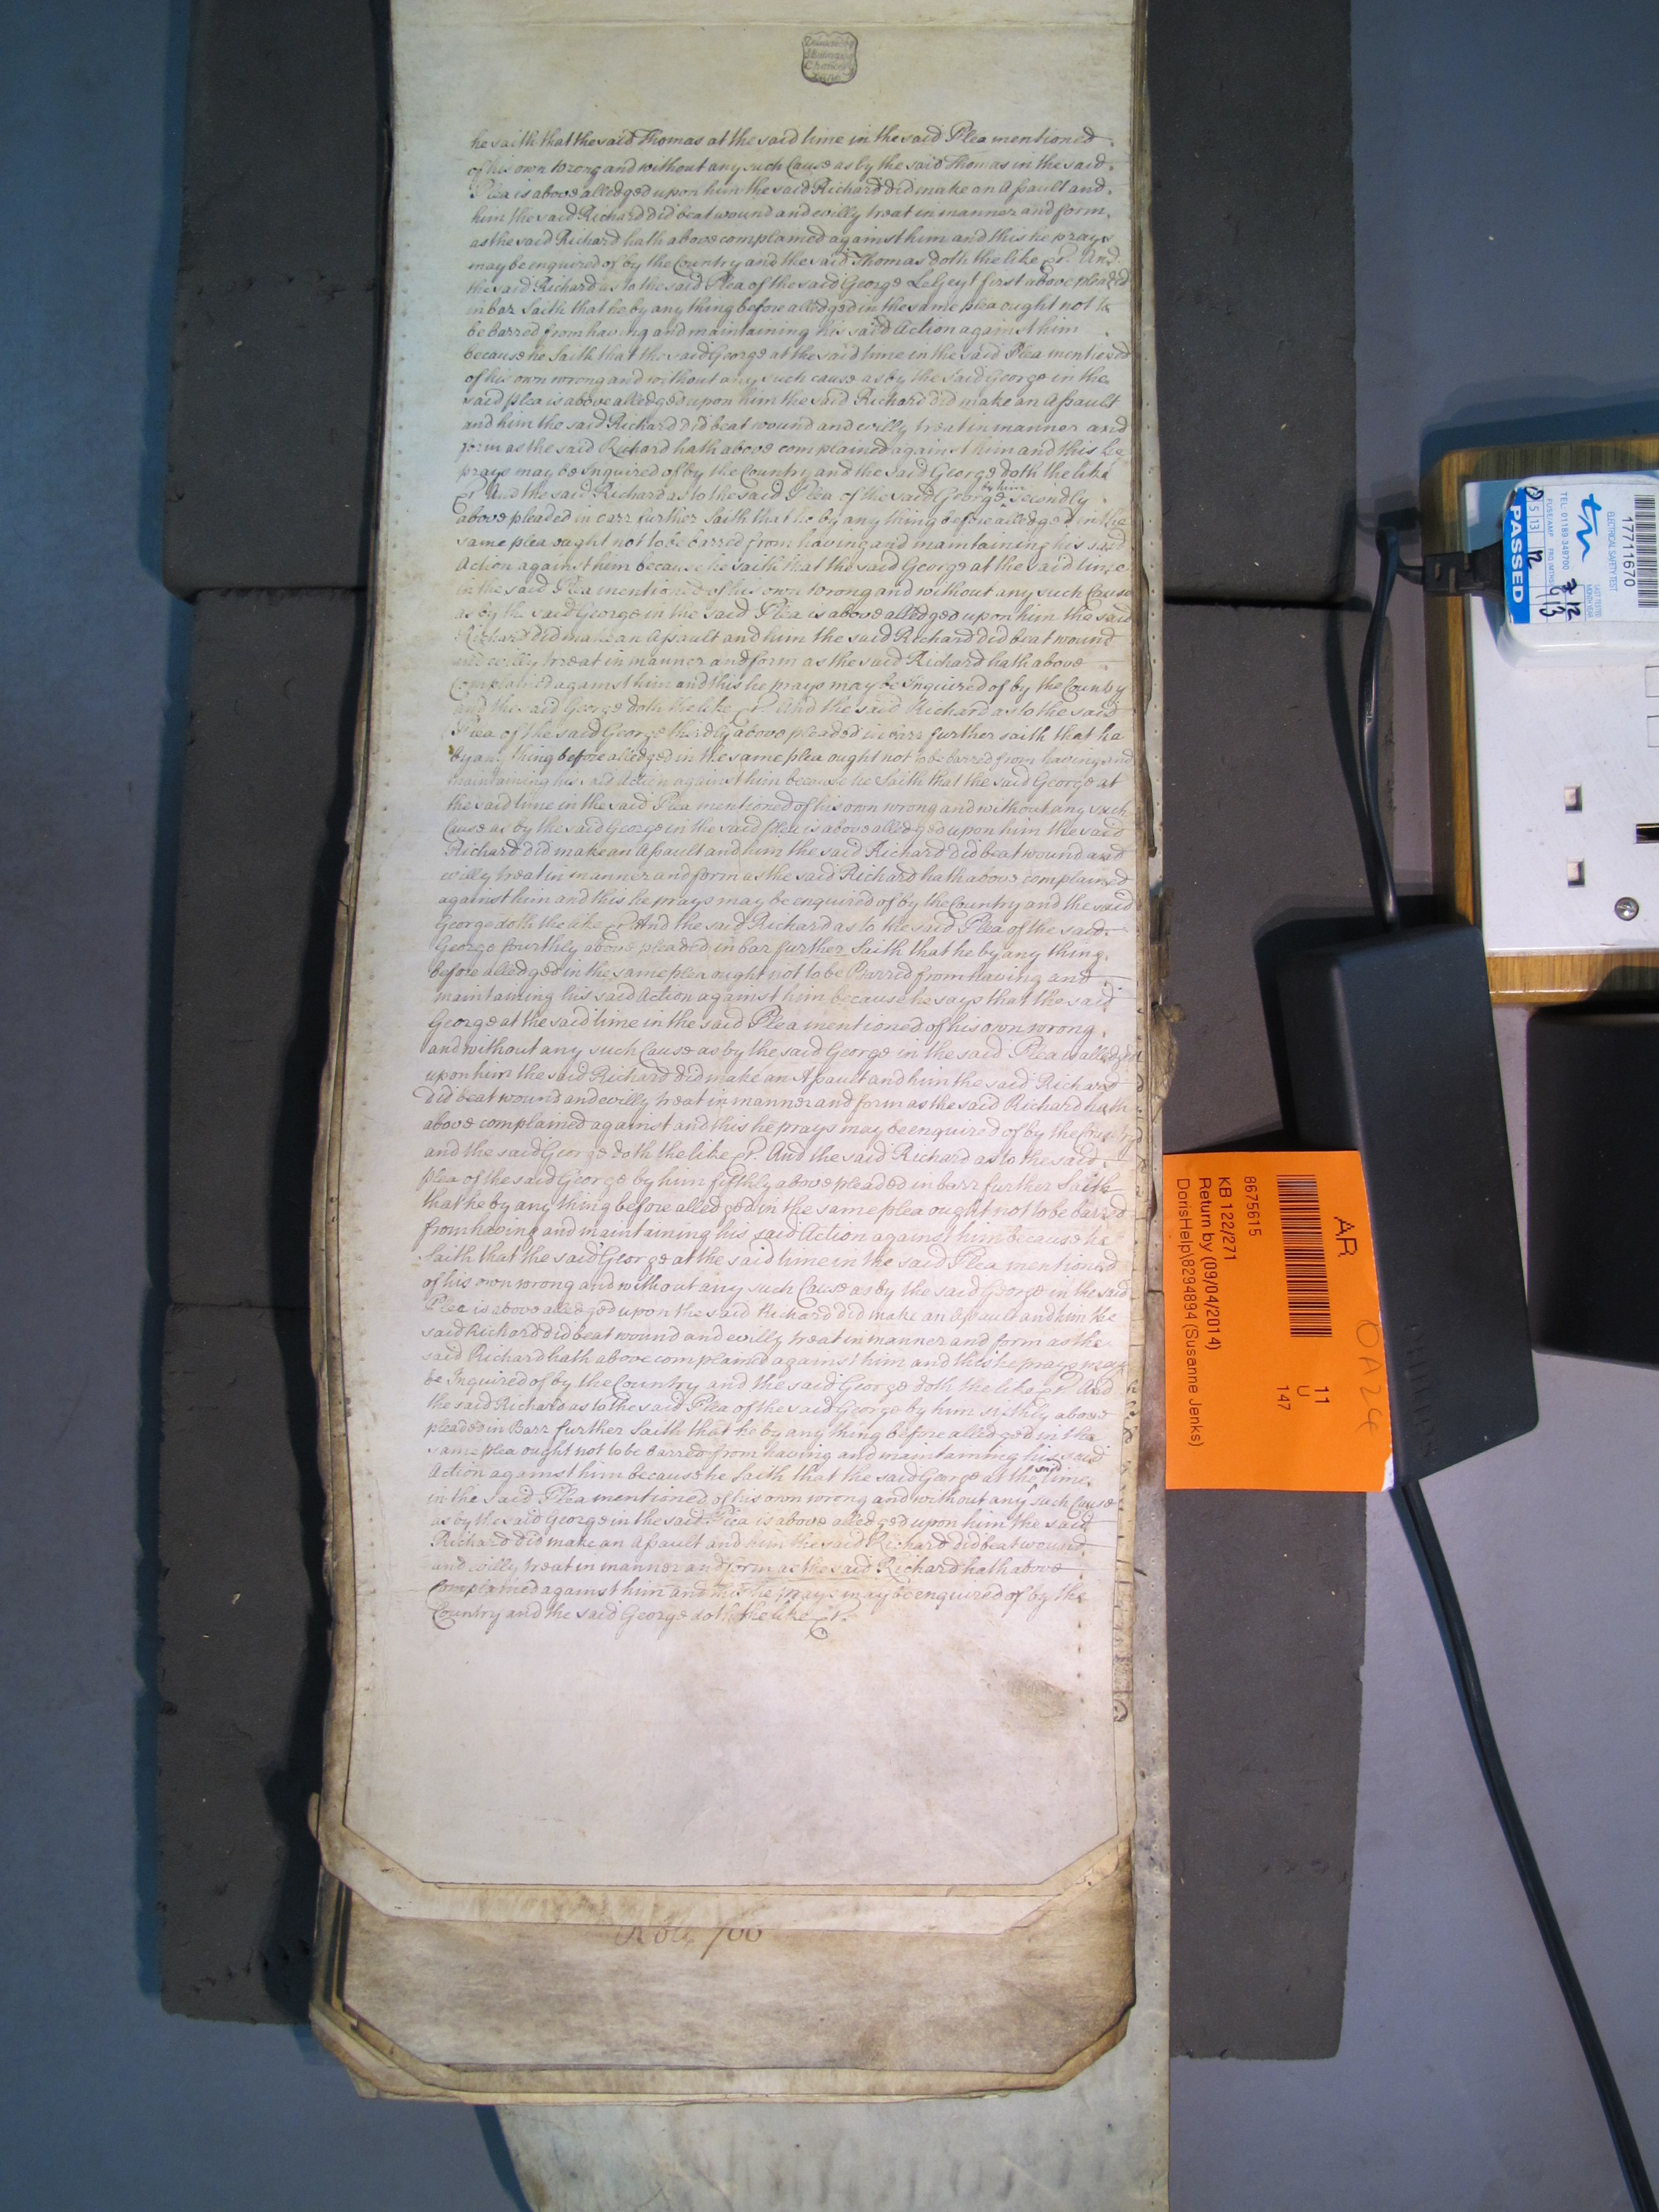 he saith that the said Thomas at the said time in the said Plea mentioned
of his own Wrong and without any such Cause as by the said Thomas in the said
Plea is above alledged upon him the said Richard did make an Assault and
him the said Richard did beat wound and evilly treat in manner and form
as the said Richard hath above complained against him and this he prays
may be enquired of by the Country and the said Thomas doth the like &c. And
the said Richard as to the said Plea of the said George LeGeyt first above pleaded
in bar Saith that he by any thing before alledged in the same plea ought not to
be barred from having and maintaining his said Action against him
because he Saith that the said George at the said time in the said Plea mentioned
of his own wrong and without any such cause as by the said George in the
said plea is above alledged upon him the said Richard did make an Assault
and him the said Richard did beat wound and evilly treat in manner and
form as the said Richard hath above complained against him and this he
prays may be Inquired of by the Country and the said George doth the like
&c. And the said Richard as to the said Plea of the said George by him secondly
above pleaded in barr further Saith that he by any thing before alledged in the
same plea ought not to be barred from having and maintaining his said
Action against him because he Saith that the said George at the said time
in the said Plea mentioned of his own Wrong and without any such Cause
as by the said George in the said Plea is above alledged upon him the said
Richard did make an Assault and him the said Richard did beat wound
and evilly treat in manner and form as the said Richard hath above
Complained against him and this he prays may be Inquired of by the Country
and the said George doth the like &c. And the said Richard as to the said
Plea of the said George thirdly above pleaded in barr further saith that he
by any thing before alledged in the same plea ought not to be barred from having and
maintaining his said Action against him because he Saith that the said George at
the said time in the said Plea mentioned of his own wrong and without any such
Cause as by the said George in the said plea is above alledged upon him the said
Richard did make an Assault and him the said Richard did beat wound and
evilly treat in manner and form as the said Richard hath above complained
against him and this he prays may be enquired of by the Country and the said
George doth the like &c. And the said Richard as to the said Plea of the said
George fourthly above pleaded in bar further Saith that he by any thing
before alledged in the same plea ought not to be Barred from having and
maintaining his said Action against him because he says that the said
George at the said time in the said Plea mentioned of his own wrong
and without any such Cause as by the said George in the said Plea is alledged
upon him the said Richard did make an Assault and him the said Richard
did beat wound and evilly treat in manner and form as the said Richard hath
above complained against and this he prays may be enquired of by the Country
and the said George doth the like &c. And the said Richard as to the said
plea of the said George by him fifthly above pleaded in barr further Saith
that he by any thing before alledged in the same plea ought not to be barred
from having and maintaining his said Action against him because he
Saith that the said George at the said time in the said Plea mentioned
of his own wrong and without any such Cause as by the said George in the said
Plea is above alledged upon the said Richard did make an Assault and him the
said Richard did beat wound and evilly treat in manner and form as the
said Richard hath above complained against him and this he prays may
be Inquired of by the Country and the said George doth the like &c. And
the said Richard as to the said Plea of the said George by him sixthly above
pleaded in Barr further Saith that he by any thing before alledged in the
same plea ought not to be Barred from having and maintaining his said
Action against him because he Saith that the said George at the said time
in the said Plea mentioned of his own wrong and without any such Cause
as by the said George in the said Plea is above alledged upon him the said
Richard did make an Assault and him the said Richard did beat wound
and evilly treat in manner and form as the said Richard hath above
Complained against him and this he prays may be enquired of by the
Country and the said George doth the like &c.
AR
8675615
KB 122/271
Return by (09/04/2014)
DorisHelp\8294894 (Susanne Jenks)
11
U
147
OA24
17711670
ELECTRICAL SAFETY TEST
TEL: 01189 349700
PASSED